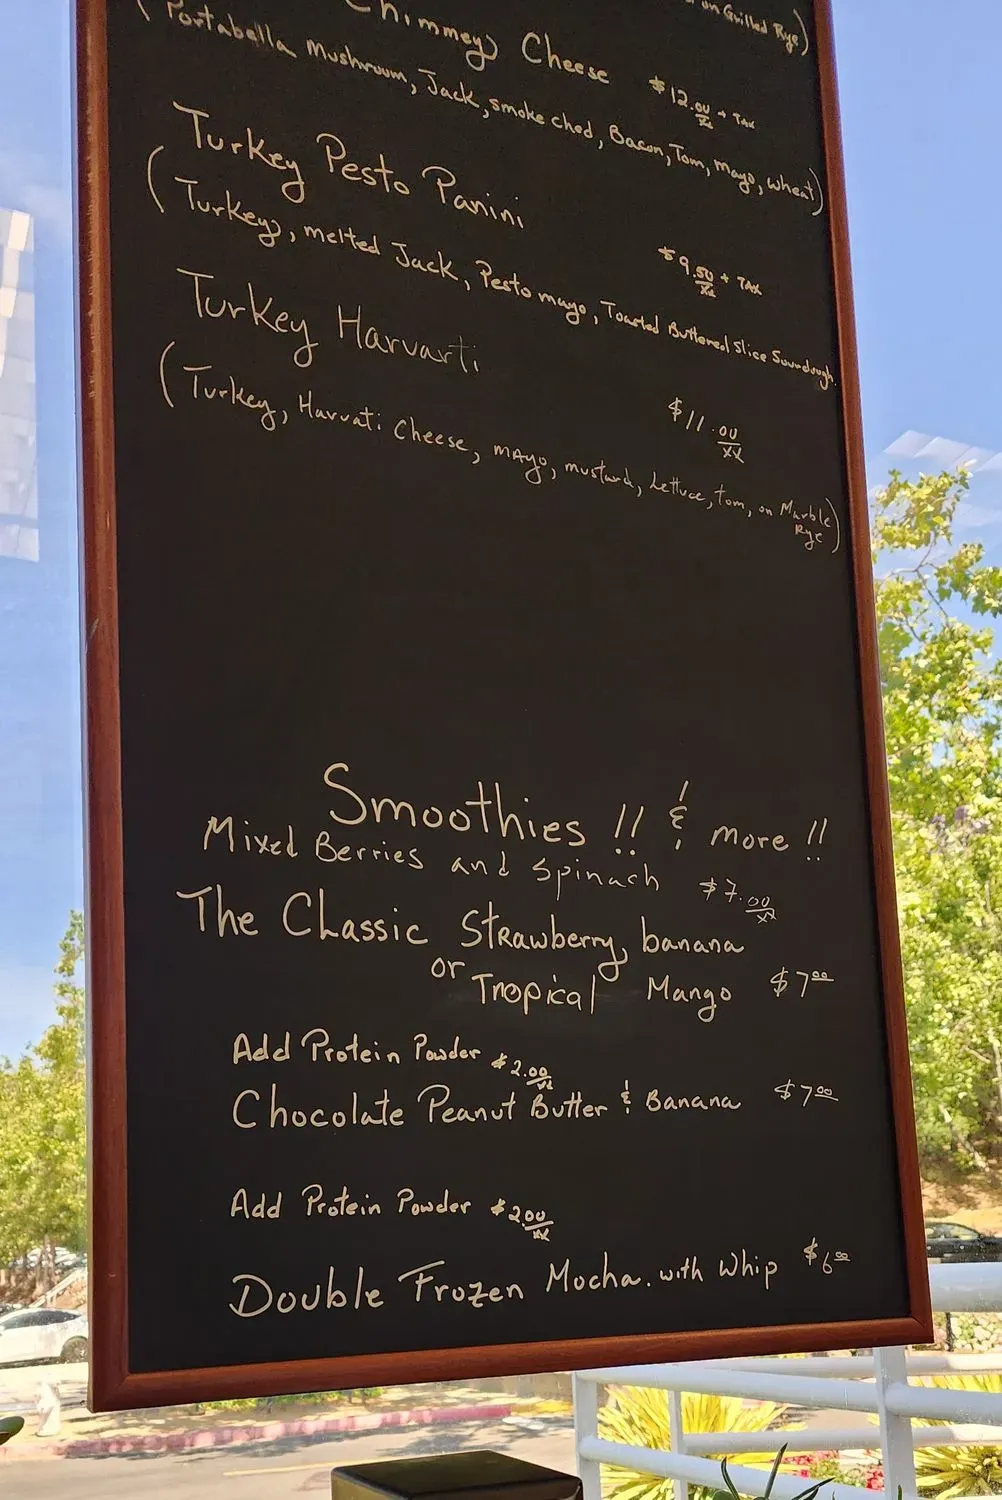 on Grilled Rye)
Chimmey Cheese $12.00/xx + Tax
(Portabella Mushroom, Jack, smoke ched, Bacon, Tom, mayo, wheat)
Turkey Pesto Panini $9.50/xx + TAX
(Turkey, melted Jack, Pesto mayo, Toasted Buttered Slice Sourdough.
Turkey Harvarti $11.00/xx
(Turkey, Harvati Cheese, mAyo, mustard, Lettuce, tom, on Marble
Rye)
Smoothies !! & more !!
Mixed Berries and Spinach $7.00/xx
The Classic Strawberry, banana
or Tropical Mango $7.00
Add Protein Powder $2.00/xx
Chocolate Peanut Butter & Banana $7.00
Add Protein Powder $2.00/xx
Double Frozen Mocha. with Whip $6.00